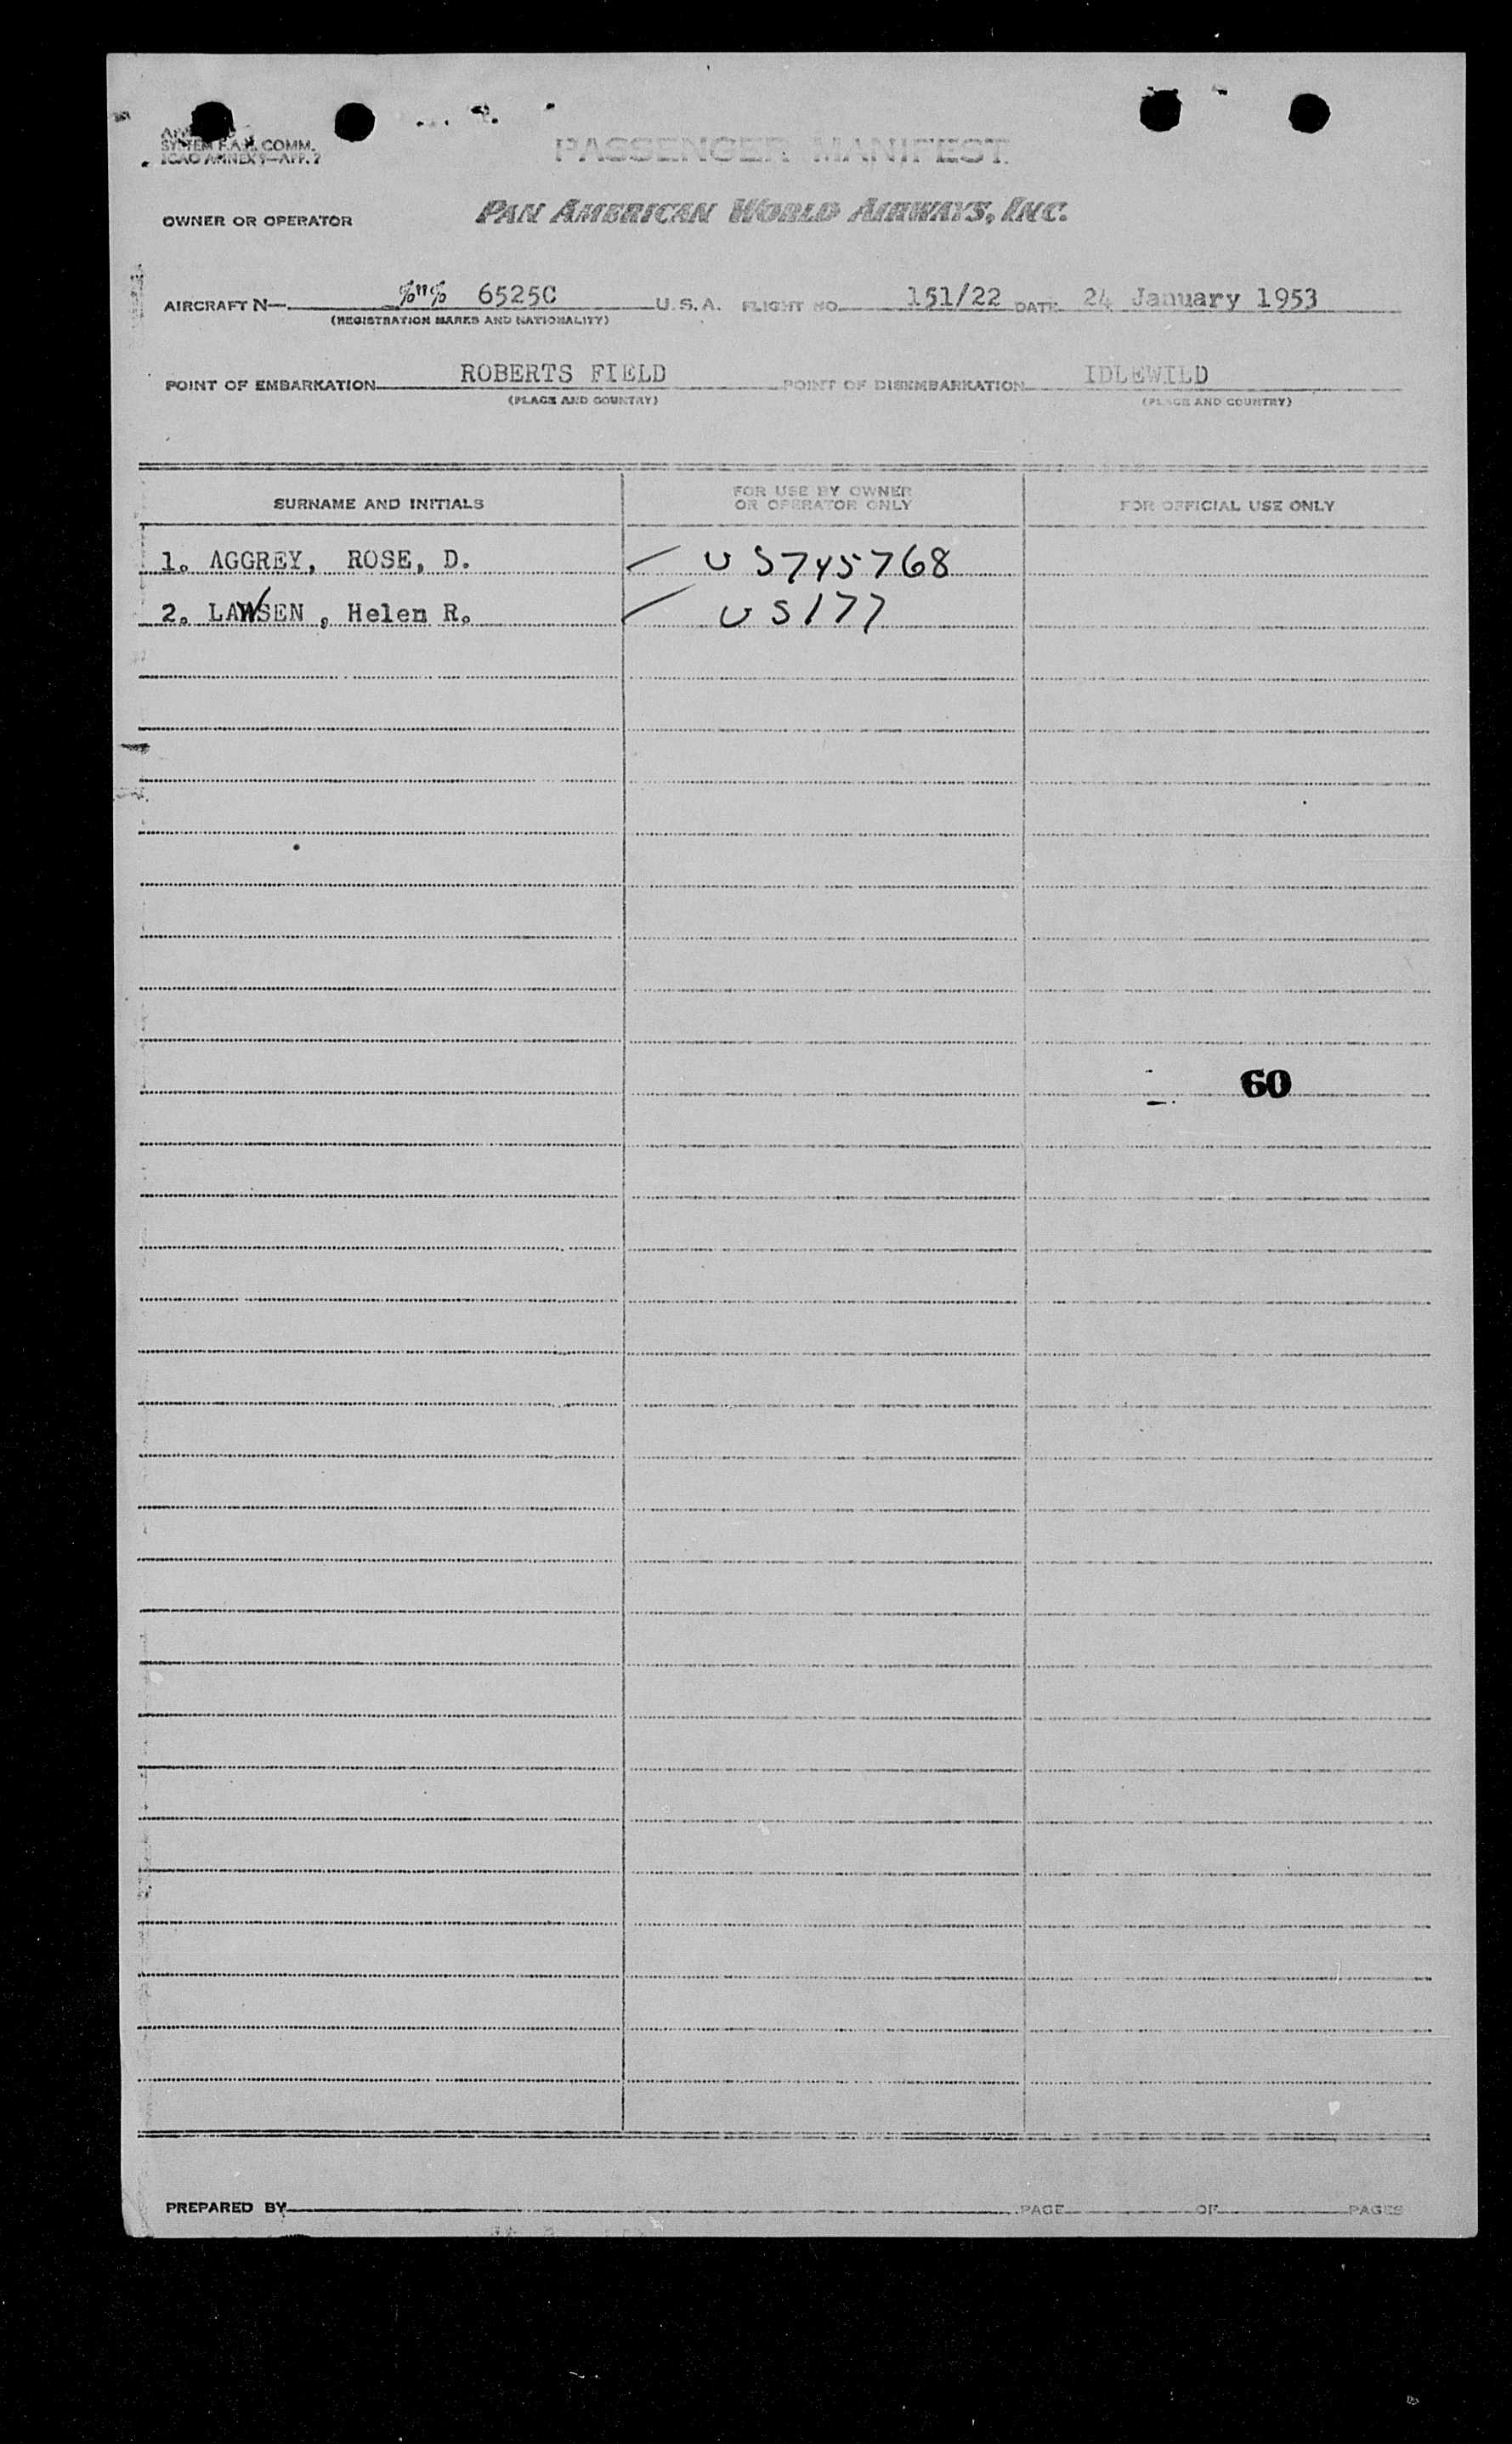 SYSTEM F.A.L. COMM.
ICAO ANNEX 9—APP. 2
PASSENGER MANIFEST
OWNER OR OPERATOR PAN AMERICAN WORLD AIRWAYS, INC.
AIRCRAFT N— %"% 6525C U.S.A. FLIGHT NO. 151/22 DATE 24 January 1953
(REGISTRATION MARKS AND NATIONALITY)
POINT OF EMBARKATION ROBERTS FIELD POINT OF DISEMBARKATION IDLEWILD
(PLACE AND COUNTRY) (PLACE AND COUNTRY)
SURNAME AND INITIALS FOR USE BY OWNER OR OPERATOR ONLY FOR OFFICIAL USE ONLY
1. AGGREY, ROSE, D. U S 745768
2. LAWSEN , Helen R. U S 177
60
PREPARED BY PAGE OF PAGES